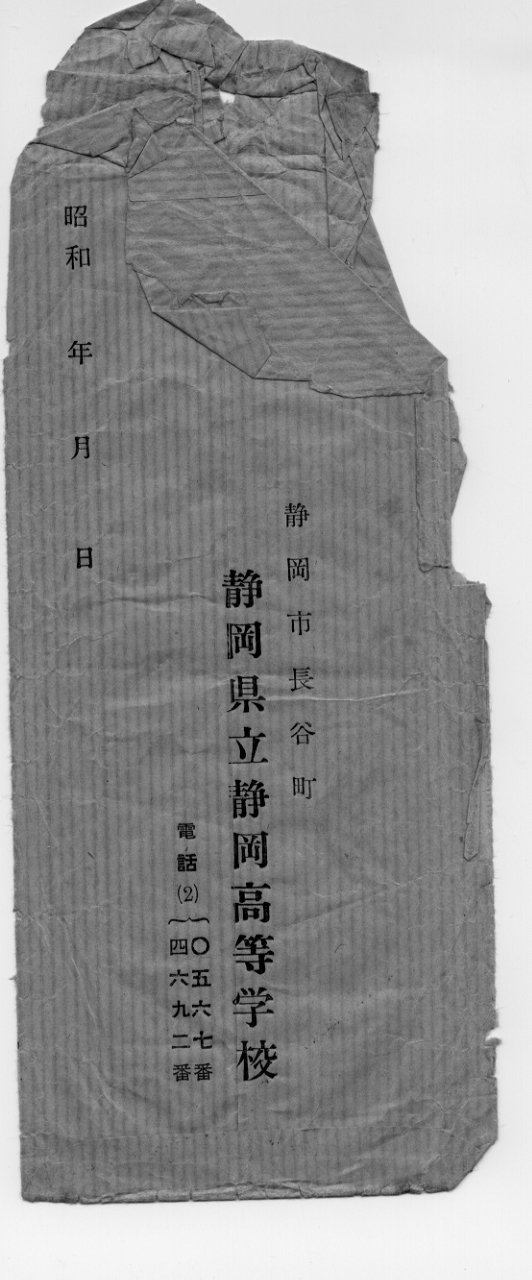 静岡市長谷町
静岡県立静岡高等学校
電話(2)
〇五六七番
四六九二番
昭和 年 月 日